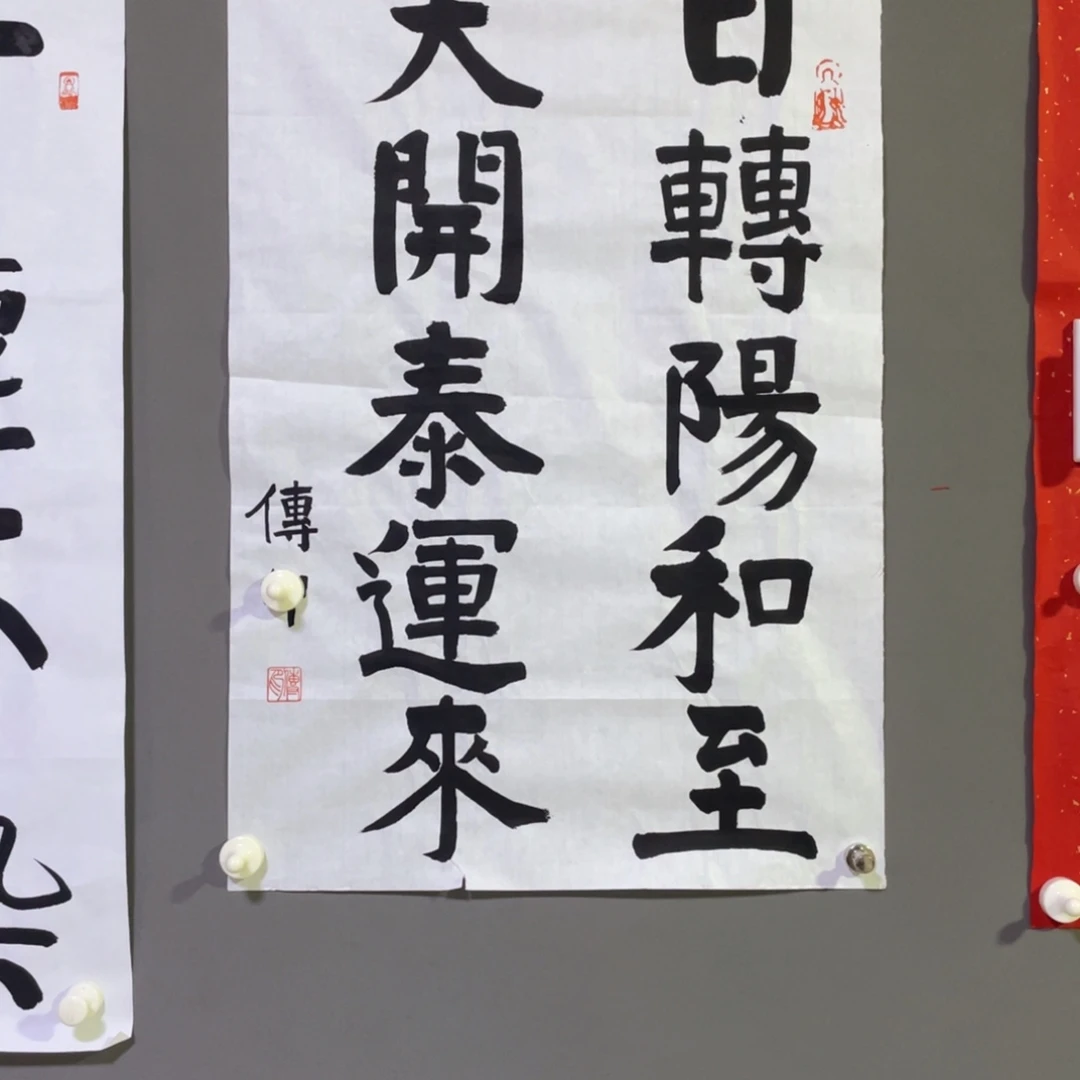 日轉陽和至
天開泰運來
傳